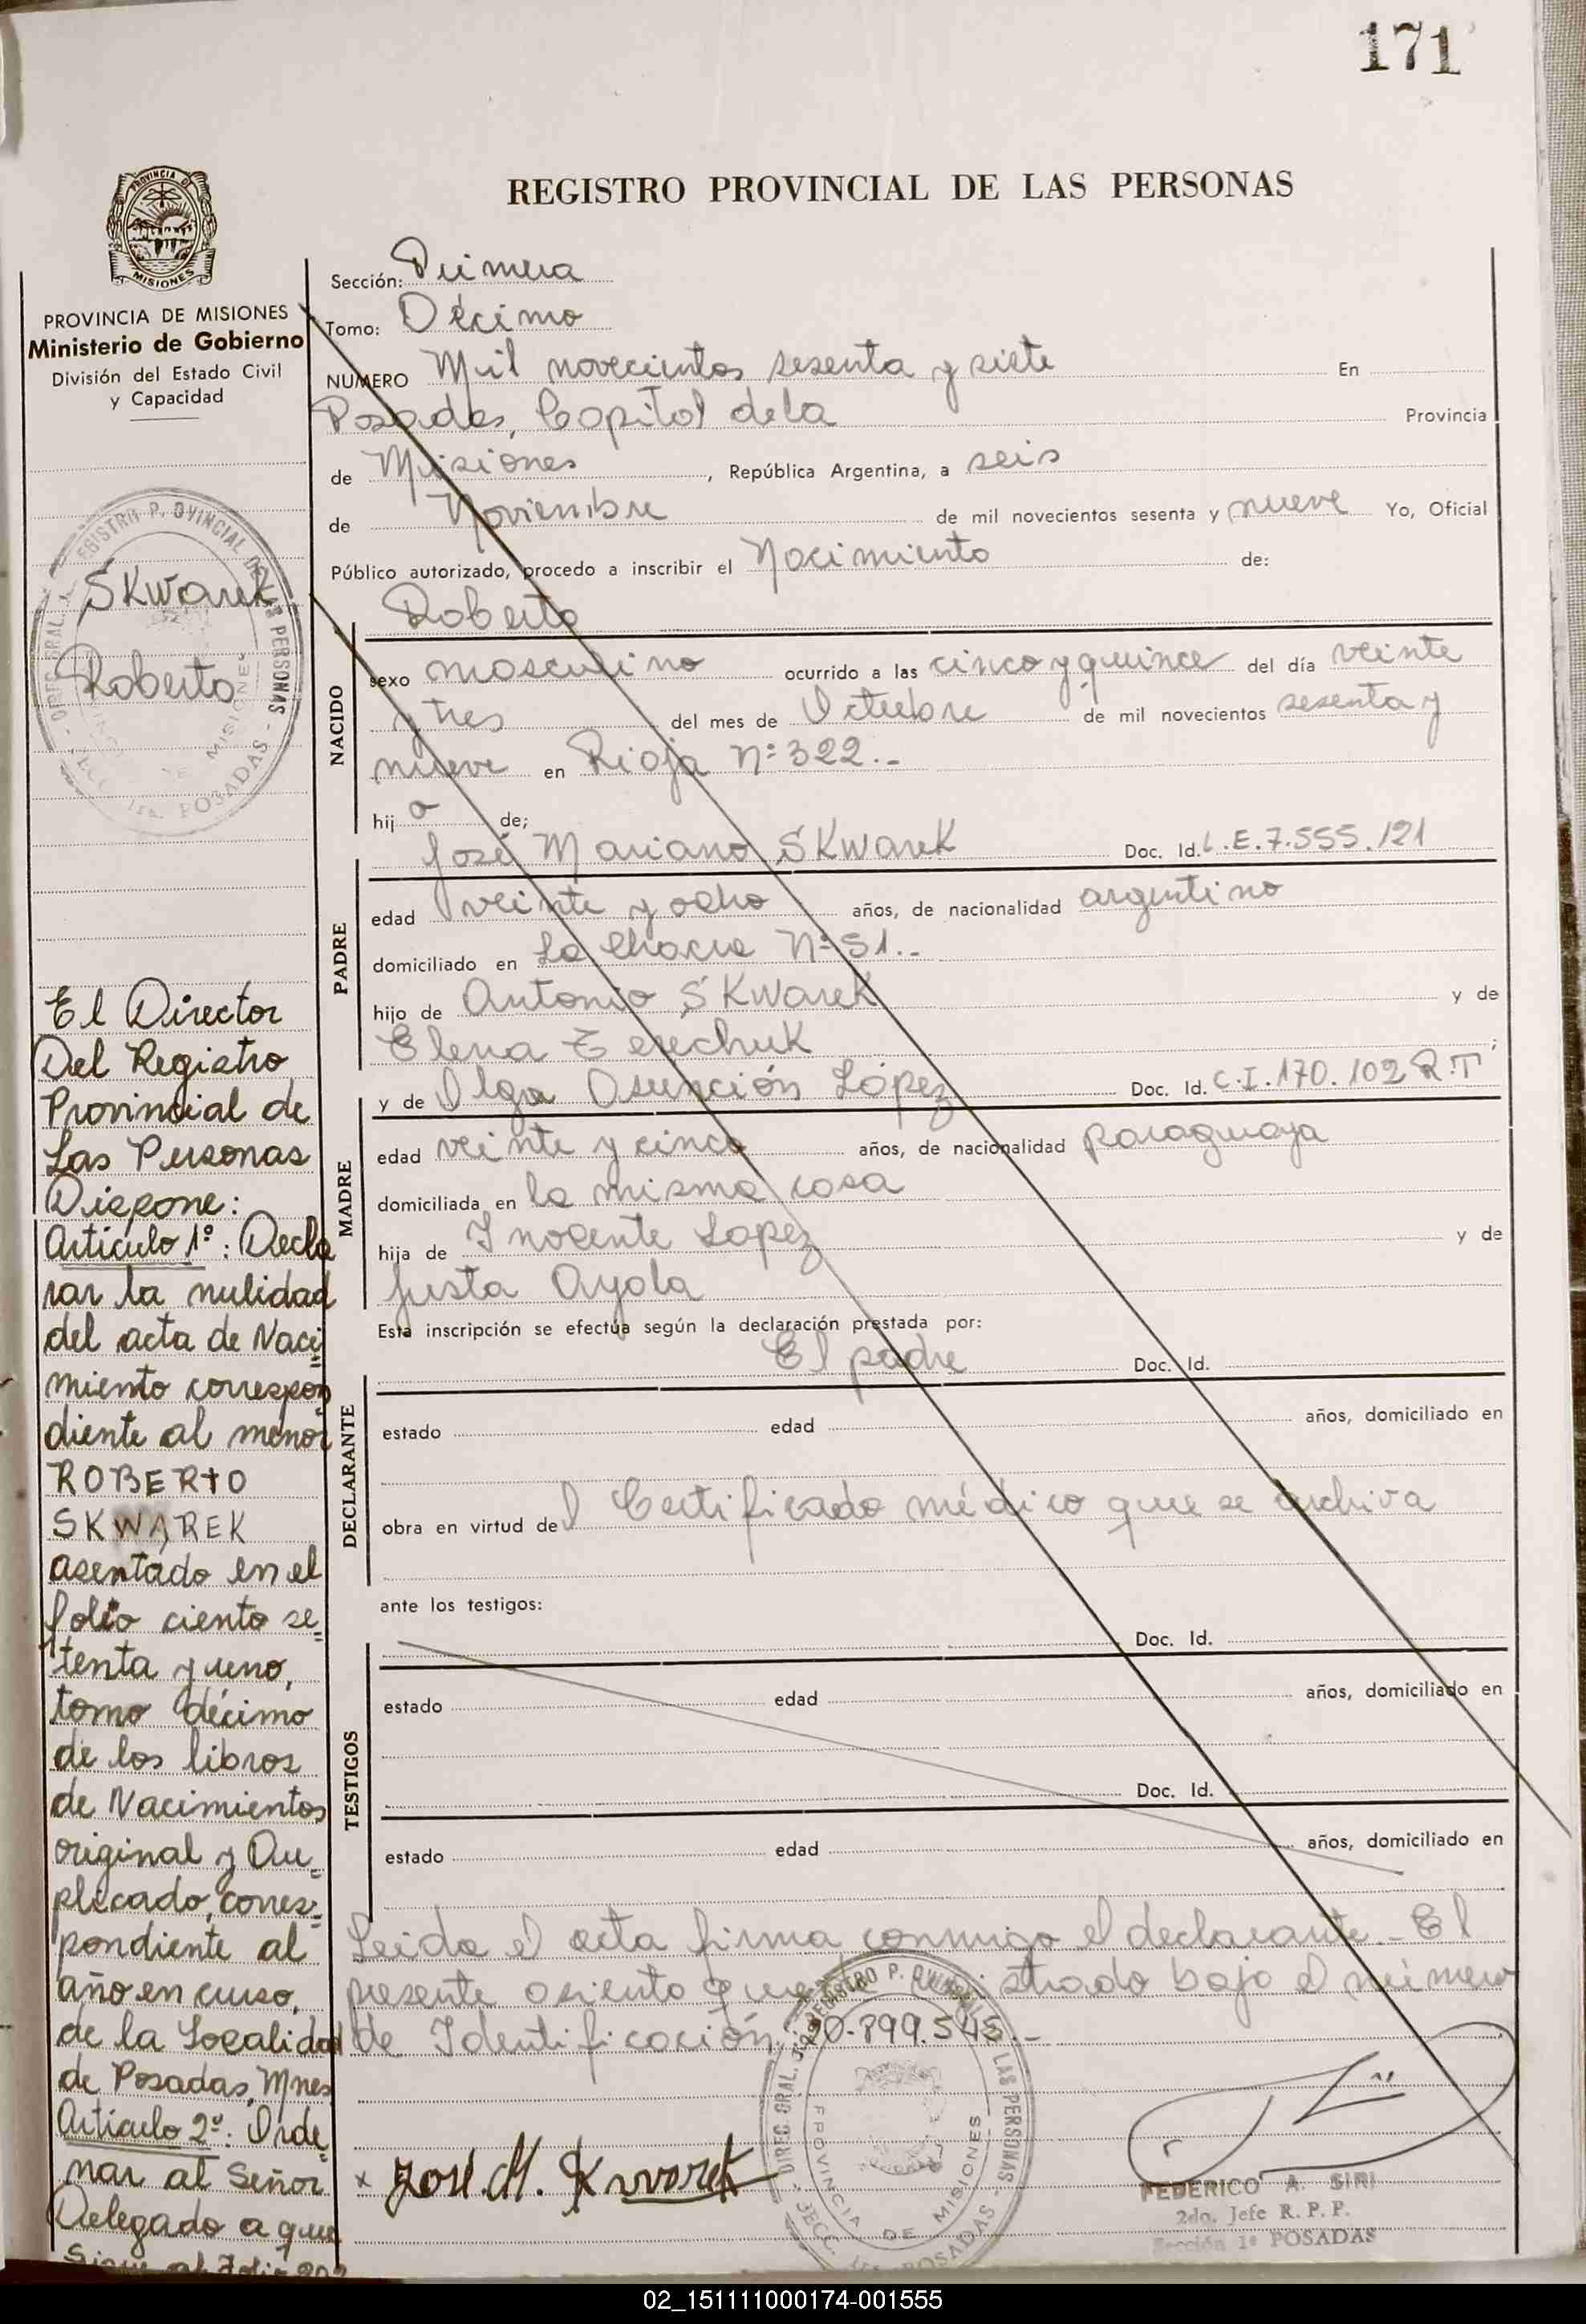 171
REGISTRO PROVINCIAL DE LAS PERSONAS
PROVINCIA DE
MISIONES
PROVINCIA DE MISIONES
Ministerio de Gobierno
División del Estado Civil
y Capacidad
SKwarek
Roberto
El Director
Del Registro
Provincial de
Las Personas
Dispone:
Artículo 1º: Decla
rar la nulidad
del acta de Naci
miento correspon
diente al menor
ROBERTO
SKWAREK
asentado en el
folio ciento se=
tenta y uno,
tomo décimo
de los libros
de Nacimientos
original y Du=
plicado, corres=
pondiente al
año en curso,
de la Localidad
de Posadas, Mnes
Artículo 2º: Orde
nar al Señor
Delegado a que
Sigue al Folio
Sección: Primera
Tomo: Décimo
NUMERO Mil novecientos sesenta y siete En
Posadas, Capital de la Provincia
de Misiones, República Argentina, a seis
de Noviembre de mil novecientos sesenta y nueve Yo, Oficial
Público autorizado, procedo a inscribir el Nacimiento de:
Roberto
NACIDO
sexo masculino ocurrido a las cinco y quince del día veinte
y tres del mes de Octubre de mil novecientos sesenta y
nueve en Rioja Nº 322.-
hijo de;
José Mariano SKwarek Doc. Id. L.E.7.555.121
PADRE
edad veinte y ocho años, de nacionalidad argentino
domiciliado en La Chacra Nº 51.-
hijo de Antonio SKwarek y de
Elena Terechuk;
y de Olga Asunción López Doc. Id. C.I.170.102 R.T
MADRE
edad veinte y cinco años, de nacionalidad paraguaya
domiciliada en la misma casa
hija de Inocente Lopez y de
Justa Ayala
Esta inscripción se efectúa según la declaración prestada por:
El padre Doc. Id.
DECLARANTE
estado edad años, domiciliado en
obra en virtud del Certificado médico que se archiva
ante los testigos:
Doc. Id.
TESTIGOS
estado edad años, domiciliado en
Doc. Id.
estado edad años, domiciliado en
Leida el acta firma conmigo el declarante.- El
presente asiento bajo el número
de Identificación 20.899.545.-
DIREC. GRAL. REGISTRO PROVINCIAL DE LAS PERSONAS
PROVINCIA DE MISIONES
SECC. 1ra. POSADAS
x José M. Skwarek
FEDERICO A. SIRI
2do. Jefe R. P. P.
Sección 1ª POSADAS
02_151111000174-001555